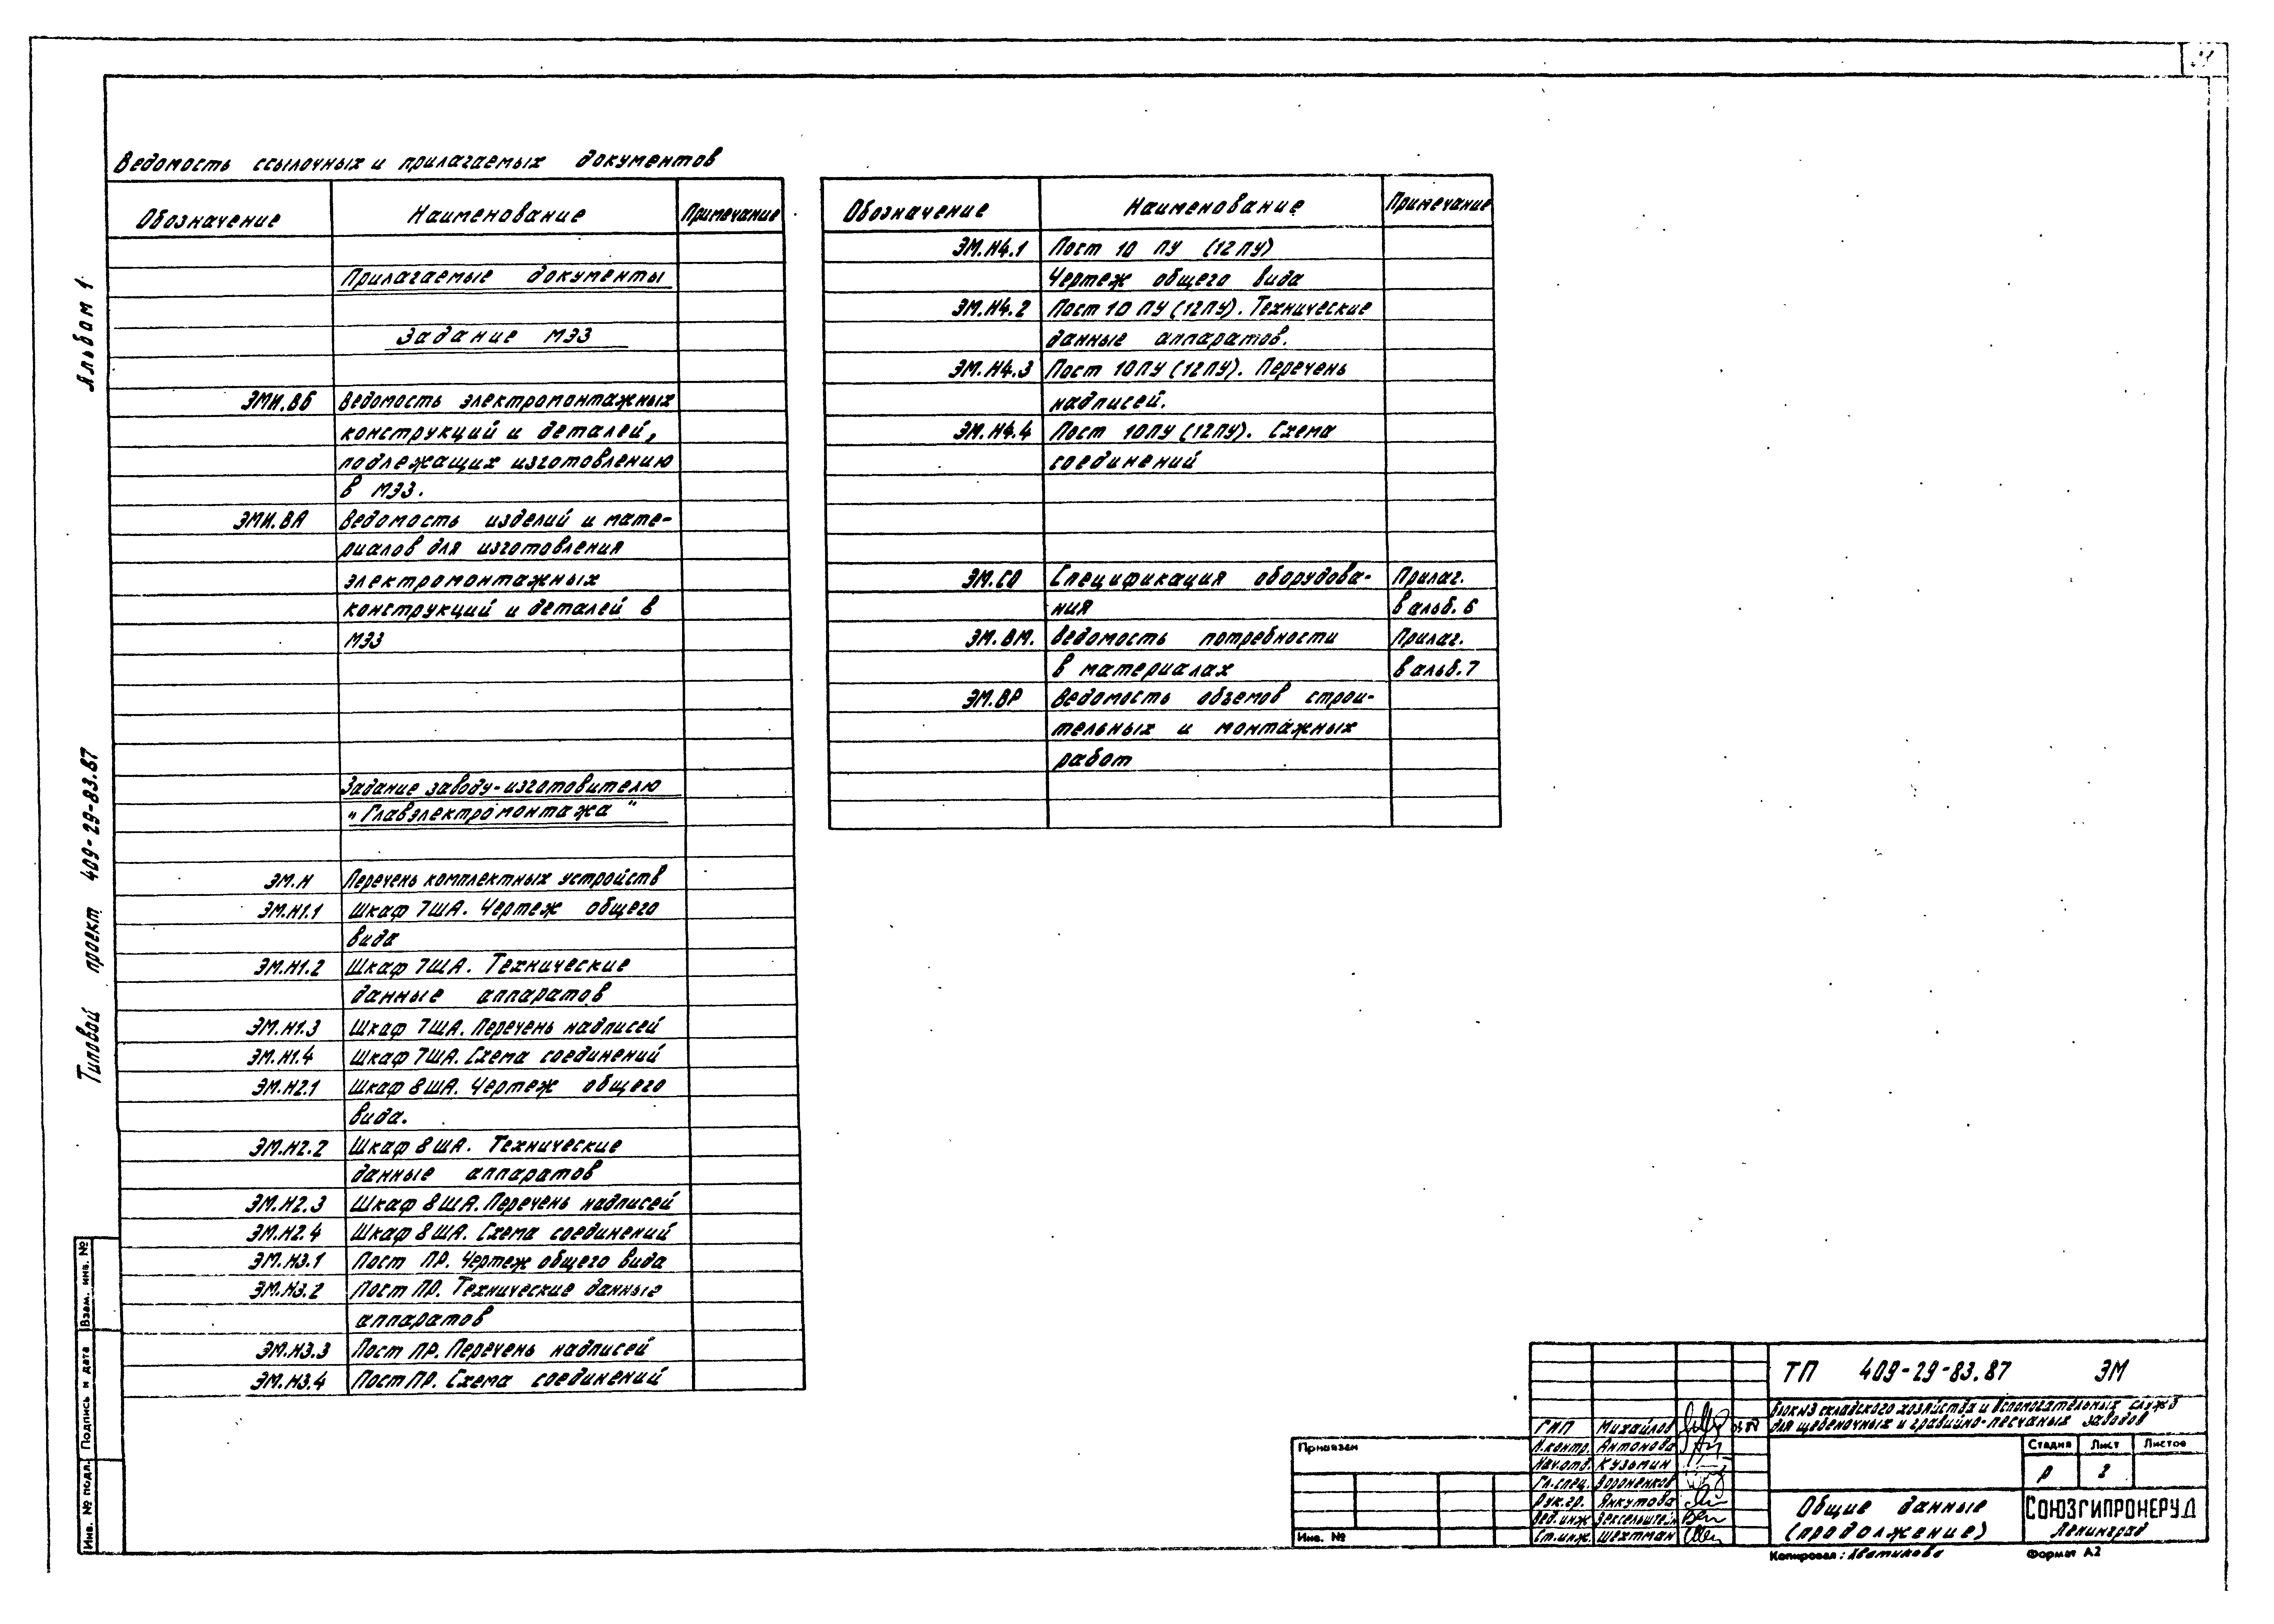 Альбом 1
Типовой проект 409-29-83.87
Ведомость ссылочных и прилагаемых документов
Обозначение Наименование Примечание
Прилагаемые документы
Задание МЭЗ
ЭМИ.ВБ Ведомость электромонтажных
конструкций и деталей,
подлежащих изготовлению
в МЭЗ.
ЭМИ.ВА Ведомость изделий и мате-
риалов для изготовления
электромонтажных
конструкций и деталей в
МЭЗ
Задание заводу-изготовителю
"Главэлектромонтажа"
ЭМ.Н Перечень комплектных устройств
ЭМ.Н1.1 Шкаф 7ША. Чертеж общего
вида
ЭМ.Н1.2 Шкаф 7ША. Технические
данные аппаратов
ЭМ.Н1.3 Шкаф 7ША. Перечень надписей
ЭМ.Н1.4 Шкаф 7ША. Схема соединений
ЭМ.Н2.1 Шкаф 8ША. Чертеж общего
вида.
ЭМ.Н2.2 Шкаф 8ША. Технические
данные аппаратов
ЭМ.Н2.3 Шкаф 8ША. Перечень надписей
ЭМ.Н2.4 Шкаф 8ША. Схема соединений
ЭМ.Н3.1 Пост ПР. Чертеж общего вида
ЭМ.Н3.2 Пост ПР. Технические данные
аппаратов
ЭМ.Н3.3 Пост ПР. Перечень надписей
ЭМ.Н3.4 Пост ПР. Схема соединений
Обозначение Наименование Примечание
ЭМ.Н4.1 Пост 10 ПУ (12ПУ)
Чертеж общего вида
ЭМ.Н4.2 Пост 10 ПУ (12ПУ). Технические
данные аппаратов.
ЭМ.Н4.3 Пост 10ПУ (12ПУ). Перечень
надписей.
ЭМ.Н4.4 Пост 10ПУ (12ПУ). Схема
соединений
ЭМ.СО Спецификация оборудова- Прилаг.
ния в альб. 6
ЭМ.ВМ. Ведомость потребности Прилаг.
в материалах в альб. 7
ЭМ.ВР Ведомость объемов строи-
тельных и монтажных
работ
Взам. инв. №
Подпись и дата
Инв. № подл.
Привязан
Инв. №
ГИП Михайлов
Н.контр. Антонова
Нач.отд. Кузьмин
Гл.спец. Вороненков
Рук.гр. Янкутова
Вед.инж. Вексельштейн
Ст.инж. Шехтман
ТП 409-29-83.87 ЭМ
Блокиз складского хозяйства и вспомогательных служб
для щебеночных и гравийно-песчаных заводов
Стадия Лист Листов
Р 2
Общие данные
(продолжение)
СОЮЗГИПРОНЕРУД
Ленинград
Копировал: Хватикова
Формат А2